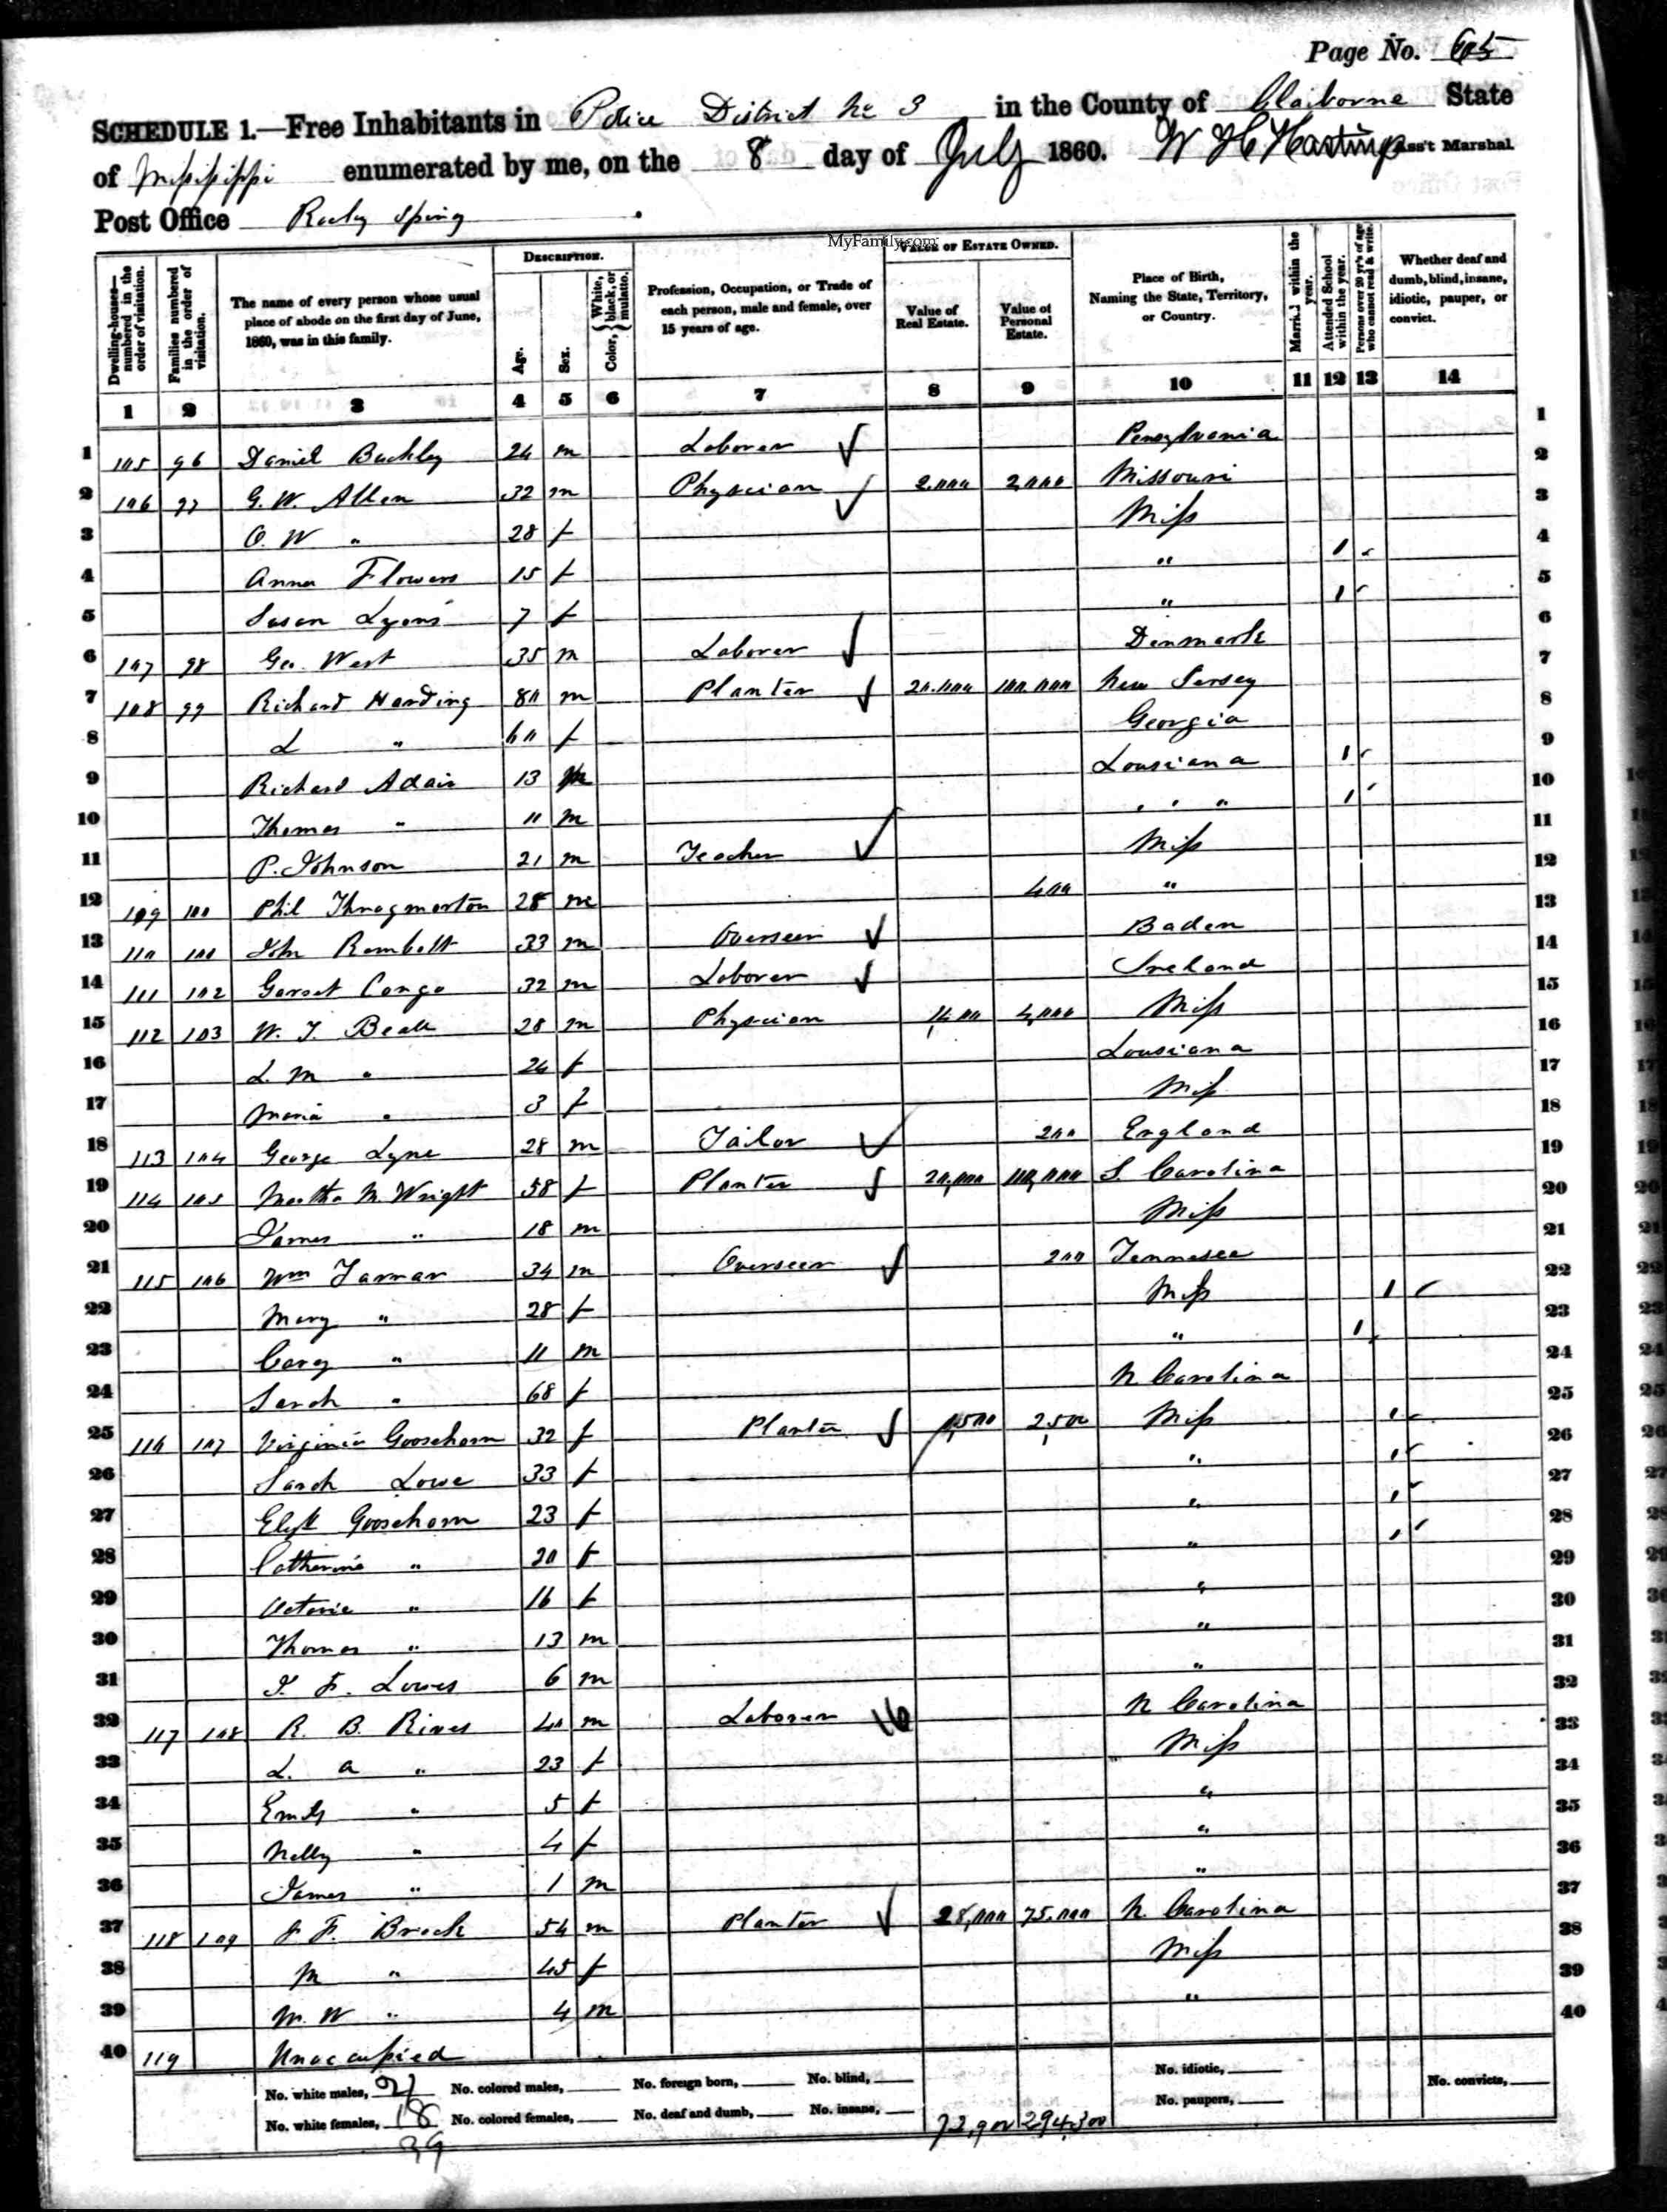 Page No. 65
SCHEDULE 1.—Free Inhabitants in Police District No 3 in the County of Claiborne State
of Mississippi enumerated by me, on the 8 day of July 1860. W H Hastings Ass't Marshal.
Post Office Rocky Spring
MyFamily.com
Dwelling-houses—numbered in the order of visitation.
Families numbered in the order of visitation.
The name of every person whose usual place of abode on the first day of June, 1860, was in this family.
DESCRIPTION.
Age.
Sex.
Color, { White, black, or mulatto.
Profession, Occupation, or Trade of each person, male and female, over 15 years of age.
VALUE OF ESTATE OWNED.
Value of Real Estate.
Value of Personal Estate.
Place of Birth, Naming the State, Territory, or Country.
Married within the year.
Attended School within the year.
Persons over 20 y'rs of age who cannot read & write.
Whether deaf and dumb, blind, insane, idiotic, pauper, or convict.
1 2 3 4 5 6 7 8 9 10 11 12 13 14
1 105 96 Daniel Buckley 24 m Laborer Pensylvania 1
2 106 97 G. W. Allen 32 m Physician 2.000 2,000 Missouri 2
3 O. W " 28 f Miss 3
4 Anna Flowers 15 f " 1 4
5 Susan Lyons 7 f " 1 5
6 107 98 Geo. West 35 m Laborer Denmark 6
7 108 99 Richard Harding 80 m Planter 20.000 100.000 New Jersey 7
8 L " 60 f Georgia 8
9 Richard Adair 13 m Lousiana 1 9
10 Thomas " 11 m " 1 10
11 P. Johnson 21 m Teacher Miss 11
12 109 100 Phil Throgmorton 28 m 400 " 12
13 110 101 John Rombelt 33 m Overseer Baden 13
14 111 102 Garret Conge 32 m Laborer Ireland 14
15 112 103 W. T. Beall 28 m Physician 1,400 4,000 Miss 15
16 L. M " 24 f Lousiana 16
17 Maria " 3 f Miss 17
18 113 104 George Lyne 28 m Tailor 200 England 18
19 114 105 Martha M. Wright 58 f Planter 20,000 110,000 S. Carolina 19
20 James " 18 m Miss 20
21 115 106 Wm Tarrar 34 m Overseer 200 Tennessee 21
22 Mary " 28 f Miss 1 22
23 Cary " 11 m " 1 23
24 Sarah " 68 f N Carolina 24
25 116 107 Virginia Goosehorn 32 f Planter 1,500 2,500 Miss 1 25
26 Sarah Lowe 33 f " 1 26
27 Elizth Goosehorn 23 f " 1 27
28 Catherine " 20 f " 1 28
29 Victoria " 16 f " 29
30 Thomas " 13 m " 30
31 J. F. Lowes 6 m " 31
32 117 108 R. B. Rives 40 m Laborer N Carolina 32
33 L. A " 23 f Miss 33
34 Emily " 5 f " 34
35 Nelly " 4 f " 35
36 James " 1 m " 36
37 118 109 J F. Brock 54 m Planter 28,000 75.000 N. Carolina 37
38 M " 45 f Miss 38
39 M. W " 4 m " 39
40 119 Unoccupied 40
No. white males, 21 No. colored males, No. foreign born, No. blind, No. idiotic, No. convicts,
No. white females, 18 No. colored females, No. deaf and dumb, No. insane, 72,900 294,300 No. paupers,
39